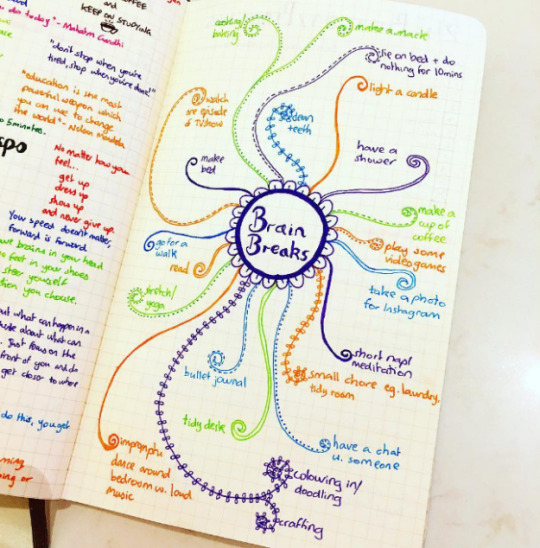 COFFEE
KEEP ON STUDYING
do today" - Mahatma Gandhi
"don't stop when you're
tired, stop when you're done!"
"Education is the most
powerful weapon which
you can use to change
the world" - Nelson Mandela
5 minutes.
spo
No matter how you
feel...
get up
dress up
show up
and never give up.
Your speed doesn't matter,
forward is forward.
have brains in your head
feet in your shoes
steer yourself
you choose.
what can happen in a
about what can
Just focus on the
front of you and do
get closer to where
do this, you get
Brain
Breaks
cooking
baking
make a mask
lie on bed + do
nothing for 10mins
light a candle
clean
teeth
watch
an episode
of TV show
have a
shower
make
bed
make a
cup of
coffee
go for a
walk
play some
video games
read
take a photo
for Instagram
stretch/
yoga
short nap/
meditation
bullet journal
small chore eg. laundry,
tidy room
tidy desk
have a chat
w. someone
impromptu
dance around
bedroom w. loud
music
colouring in/
doodling
crafting